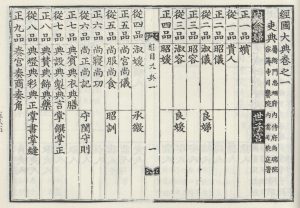 經國大典卷之一
吏典
內命婦 世子宮
正一品 嬪
從一品 貴人
正二品 昭儀
從二品 淑儀 良娣
正三品 昭容
從三品 淑容 良媛
正四品 昭媛
經國大典 一
從四品 淑媛 承徽
正五品 尚宮尚儀
從五品 尚服尚食 昭訓
正六品 尚寢尚功
從六品 尚正尚記 守閨守則
正七品 典賓典衣典膳
從七品 典設典製典言 掌饌掌正
正八品 典贊典飾典藥
從八品 典燈典彩典正 掌書掌縫
正九品 奏宮奏商奏角